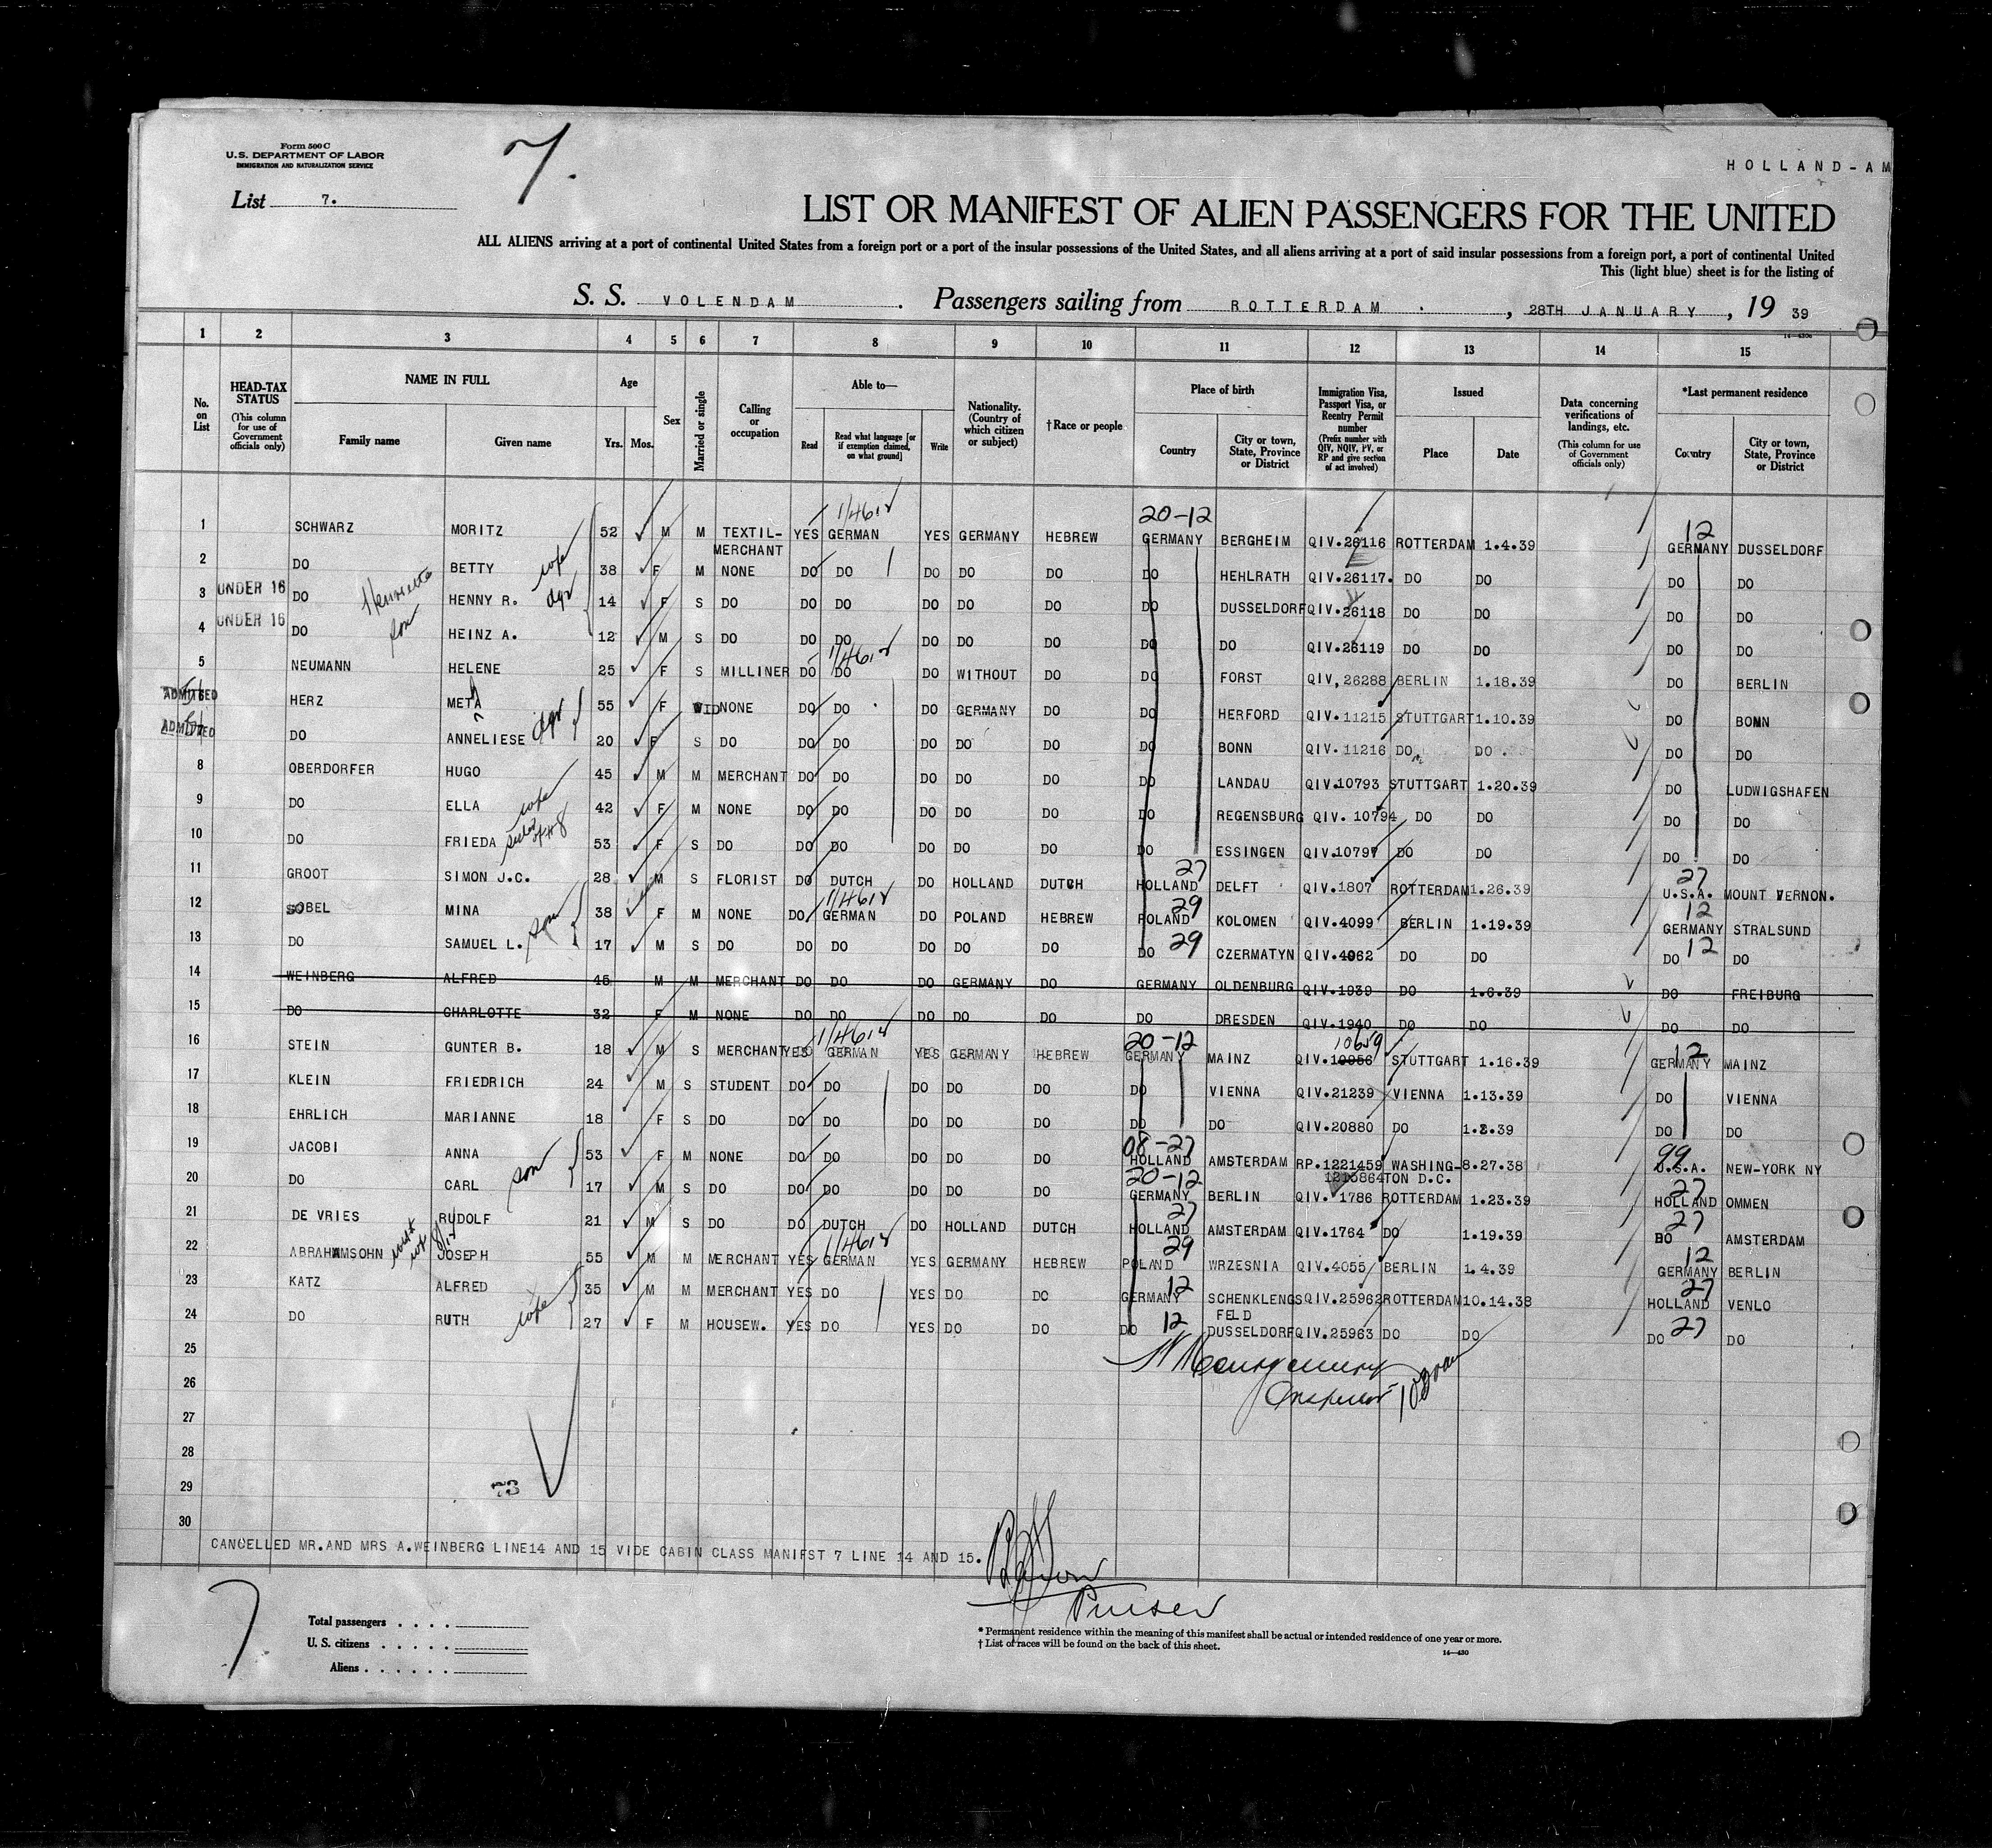 Form 500 C
U.S. DEPARTMENT OF LABOR
IMMIGRATION AND NATURALIZATION SERVICE
7.
HOLLAND-AM
List 7.
LIST OR MANIFEST OF ALIEN PASSENGERS FOR THE UNITED
ALL ALIENS arriving at a port of continental United States from a foreign port or a port of the insular possessions of the United States, and all aliens arriving at a port of said insular possessions from a foreign port, a port of continental United
This (light blue) sheet is for the listing of
S. S. VOLENDAM . Passengers sailing from ROTTERDAM . , 28TH JANUARY , 19 39
1 2 3 4 5 6 7 8 9 10 11 12 13 14 15
No. on List
HEAD-TAX STATUS (This column for use of Government officials only)
NAME IN FULL
Family name Given name
Age
Yrs. Mos.
Sex
Married or single
Calling or occupation
Able to—
Read Read what language [or if exemption claimed, on what ground] Write
Nationality. (Country of which citizen or subject)
†Race or people
Place of birth
Country City or town, State, Province or District
Immigration Visa, Passport Visa, or Reentry Permit number (Prefix number with QIV, NQIV, PV, or RP and give section of act involved)
Issued
Place Date
Data concerning verifications of landings, etc. (This column for use of Government officials only)
*Last permanent residence
Country City or town, State, Province or District
1 SCHWARZ MORITZ 52 M M TEXTIL-MERCHANT YES GERMAN YES GERMANY HEBREW 20-12 GERMANY BERGHEIM QIV.26116 ROTTERDAM 1.4.39 12 GERMANY DUSSELDORF
2 DO BETTY wife 38 F M NONE DO DO DO DO DO DO HEHLRATH QIV.26117. DO DO DO DO
3 UNDER 16 DO Henriette HENNY R. dgr 14 F S DO DO DO DO DO DO DO DUSSELDORF QIV.26118 DO DO DO DO
4 UNDER 16 DO son HEINZ A. 12 M S DO DO DO DO DO DO DO DO QIV.26119 DO DO DO DO
5 NEUMANN HELENE 25 F S MILLINER DO DO DO WITHOUT DO DO FORST QIV,26288 BERLIN 1.18.39 DO BERLIN
ADMITTED HERZ META 55 F WID NONE DO DO DO GERMANY DO DO HERFORD QIV.11215 STUTTGART 1.10.39 DO BONN
ADMITTED DO ANNELIESE dgr 20 F S DO DO DO DO DO DO DO BONN QIV.11216 DO DO DO DO
8 OBERDORFER HUGO 45 M M MERCHANT DO DO DO DO DO DO LANDAU QIV.10793 STUTTGART 1.20.39 DO LUDWIGSHAFEN
9 DO ELLA wife 42 F M NONE DO DO DO DO DO DO REGENSBURG QIV. 10794 DO DO DO DO
10 DO FRIEDA 53 F S DO DO DO DO DO DO DO ESSINGEN QIV.10797 DO DO DO DO
11 GROOT SIMON J.C. 28 M S FLORIST DO DUTCH DO HOLLAND DUTCH 27 HOLLAND DELFT QIV.1807 ROTTERDAM 1.26.39 27 U.S.A. MOUNT VERNON.
12 SOBEL MINA 38 F M NONE DO GERMAN DO POLAND HEBREW 29 POLAND KOLOMEN QIV.4099 BERLIN 1.19.39 12 GERMANY STRALSUND
13 DO SAMUEL L. son 17 M S DO DO DO DO DO DO DO 29 CZERMATYN QIV.4062 DO DO DO 12 DO
14 WEINBERG ALFRED 45 M M MERCHANT DO DO DO GERMANY DO GERMANY OLDENBURG QIV.1939 DO 1.6.39 DO FREIBURG
15 DO CHARLOTTE 32 F M NONE DO DO DO DO DO DO DRESDEN QIV.1940 DO DO DO DO
16 STEIN GUNTER B. 18 M S MERCHANT YES GERMAN YES GERMANY HEBREW 20-12 GERMANY MAINZ QIV. 10659 STUTTGART 1.16.39 12 GERMANY MAINZ
17 KLEIN FRIEDRICH 24 M S STUDENT DO DO DO DO DO DO VIENNA QIV.21239 VIENNA 1.13.39 DO VIENNA
18 EHRLICH MARIANNE 18 F S DO DO DO DO DO DO DO DO QIV.20880 DO 1.3.39 DO DO
19 JACOBI ANNA 53 F M NONE DO DO DO DO DO 08-27 HOLLAND AMSTERDAM RP.1221459 WASHING-TON D.C. 8.27.38 99 U.S.A. NEW-YORK NY
20 DO CARL son 17 M S DO DO DO DO DO DO 20-12 GERMANY BERLIN QIV. 1786 ROTTERDAM 1.23.39 27 HOLLAND OMMEN
21 DE VRIES RUDOLF 21 M S DO DO DUTCH DO HOLLAND DUTCH 27 HOLLAND AMSTERDAM QIV.1764 DO 1.19.39 27 DO AMSTERDAM
22 ABRAHAMSOHN JOSEPH 55 M M MERCHANT YES GERMAN YES GERMANY HEBREW 29 POLAND WRZESNIA QIV.4055 BERLIN 1.4.39 12 GERMANY BERLIN
23 KATZ ALFRED 35 M M MERCHANT YES DO YES DO DO 12 GERMANY SCHENKLENGSFELD QIV.25962 ROTTERDAM 10.14.38 27 HOLLAND VENLO
24 DO RUTH wife 27 F M HOUSEW. YES DO YES DO DO DO 12 DUSSELDORF QIV.25963 DO DO DO 27 DO
25
26
27
28
29
73
30
CANCELLED MR.AND MRS A.WEINBERG LINE14 AND 15 VIDE CABIN CLASS MANIFST 7 LINE 14 AND 15.
Purser
7
Total passengers . . . .
U. S. citizens . . . . .
Aliens . . . . . .
* Permanent residence within the meaning of this manifest shall be actual or intended residence of one year or more.
† List of races will be found on the back of this sheet.
14—430